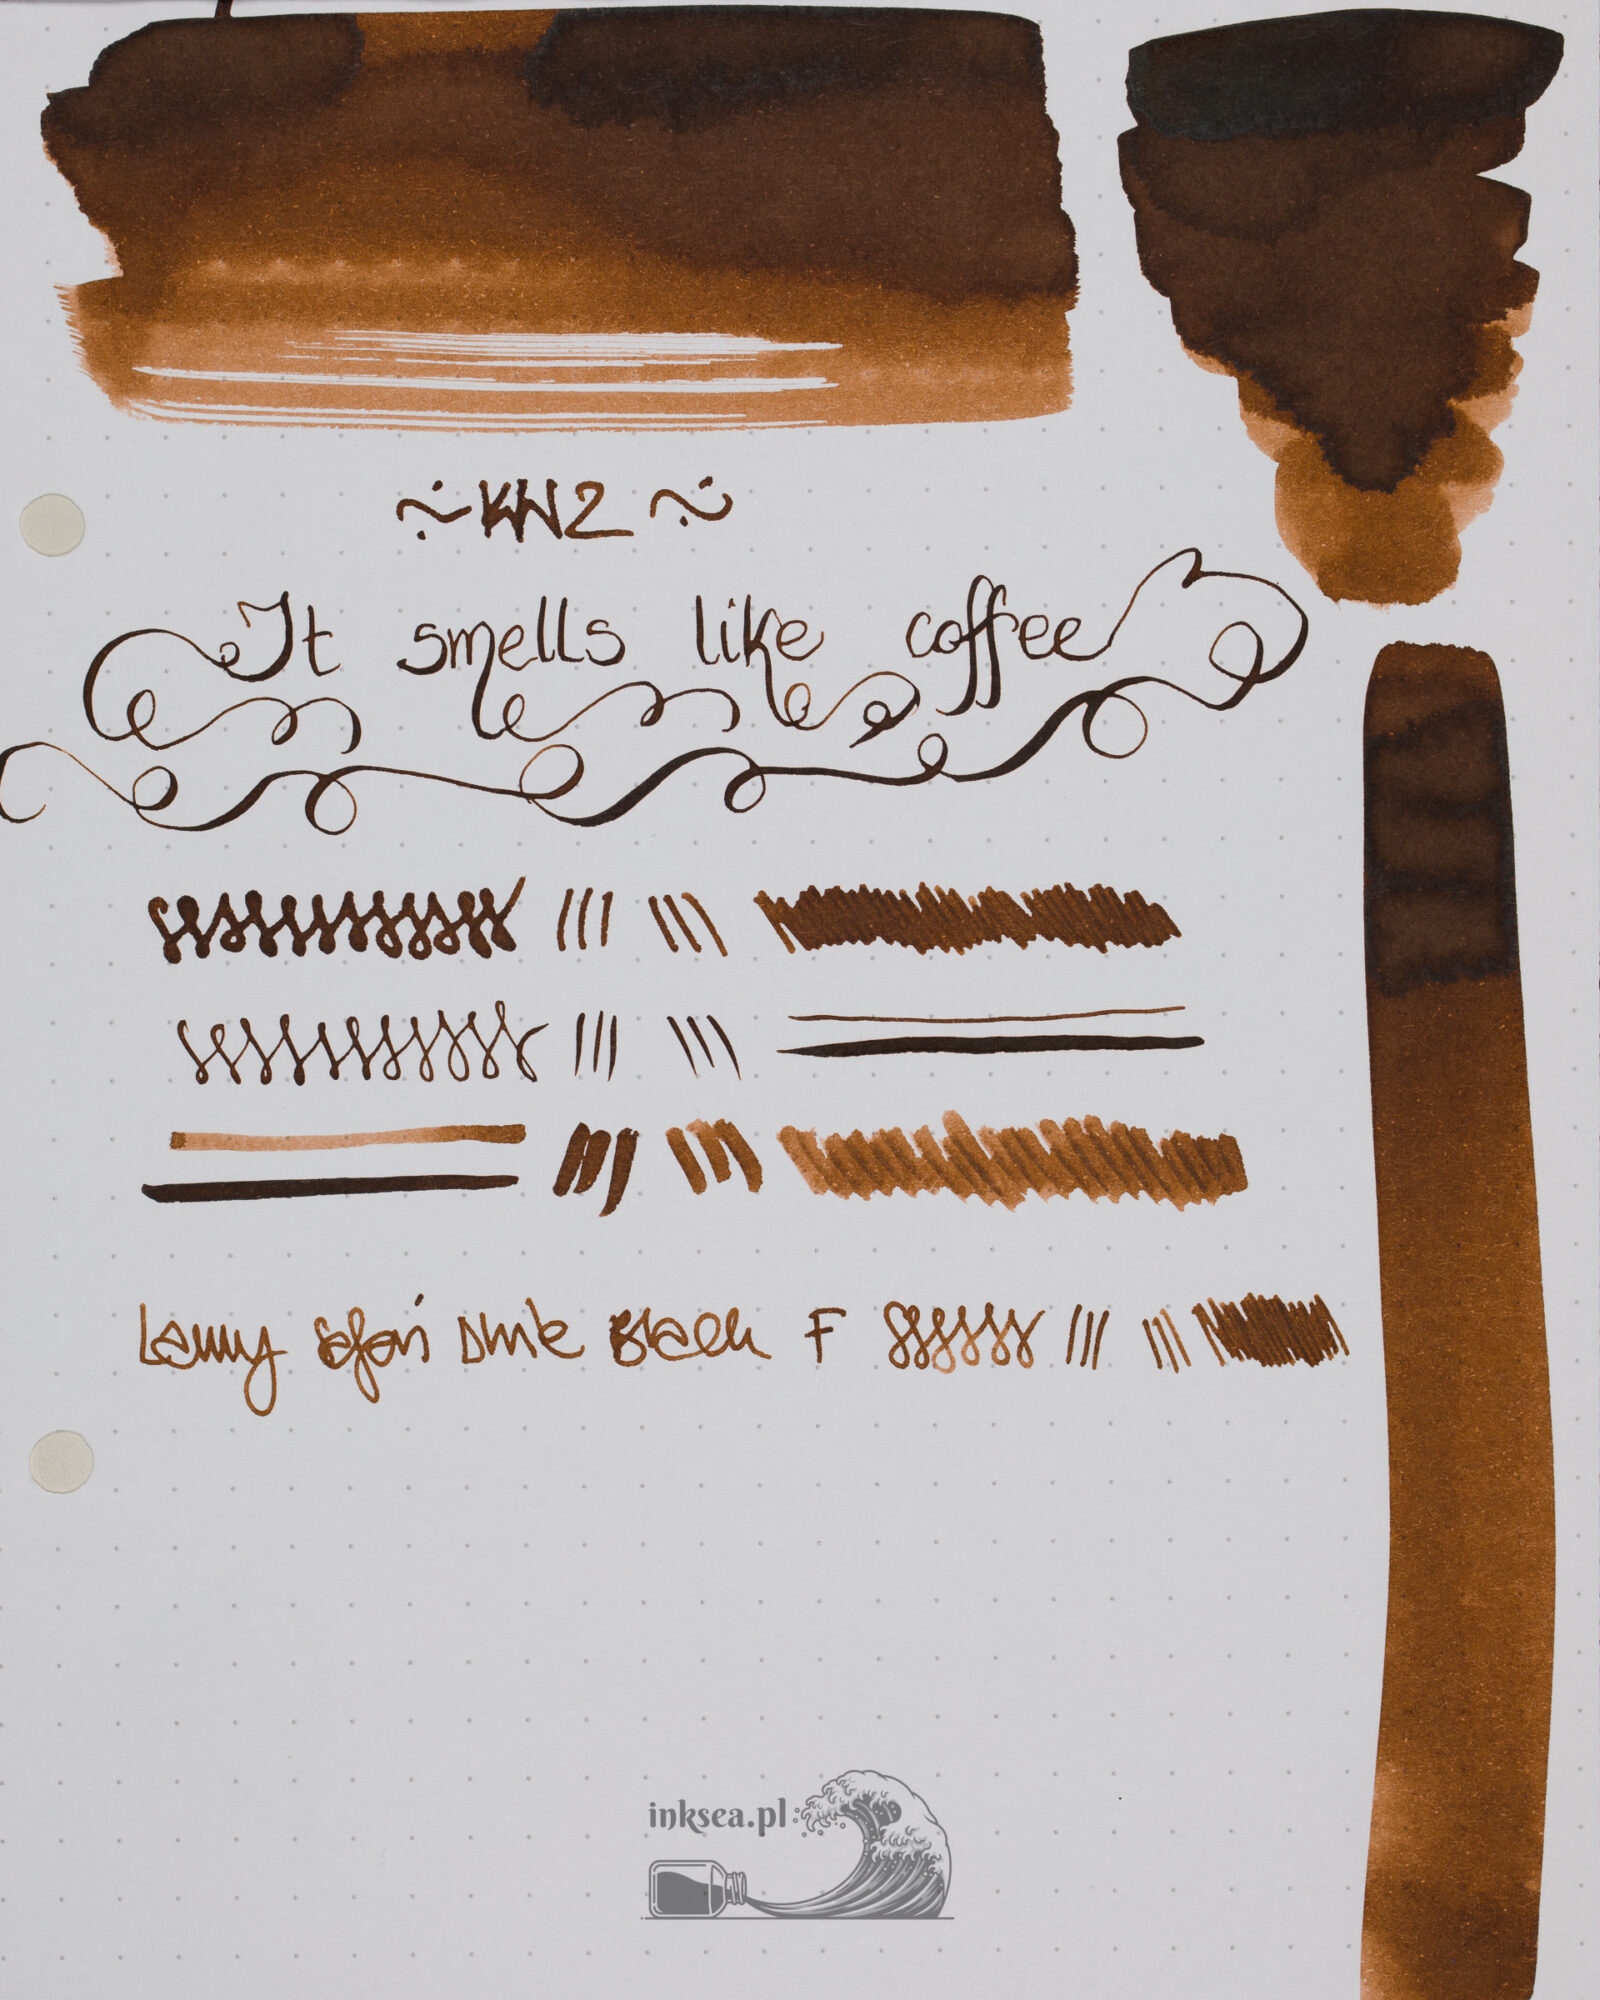 ~KWZ~
It smells like coffee
Lamy Safari Dark Black F
inksea.pl